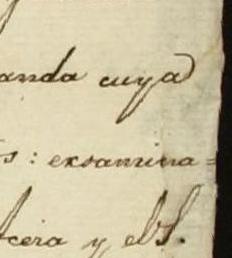 anda cuya
s: exsamina=
cera y el S.